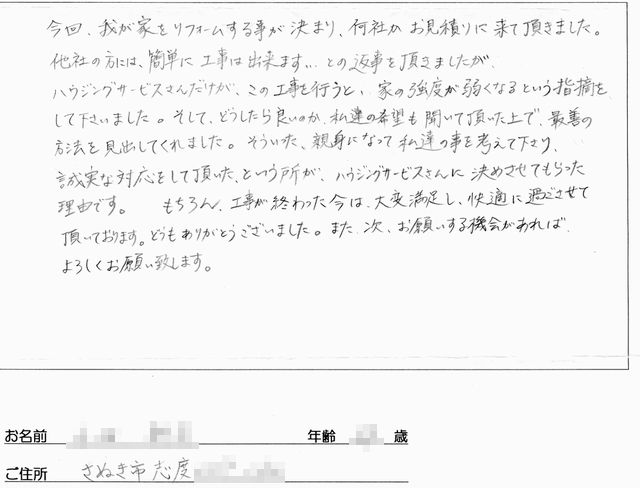 今回、我が家をリフォームする事が決まり、何社かお見積りに来て頂きました。
他社の方には、簡単に工事は出来ます... との返事を頂きましたが、
ハウジングサービスさんだけが、この工事を行うと、家の強度が弱くなるという指摘を
して下さいました。そして、どうしたら良いのか、私達の希望も聞いて頂いた上で、最善の
方法を見出してくれました。そういった、親身になって私達の事を考えて下さり、
誠実な対応をして頂いた、という所が、ハウジングサービスさんに決めさせてもらった
理由です。 もちろん、工事が終わった今は、大変満足し、快適に過ごさせて
頂いております。どうもありがとうございました。また、次、お願いする機会があれば、
よろしくお願い致します。
お名前 年齢 歳
ご住所 さぬき市志度